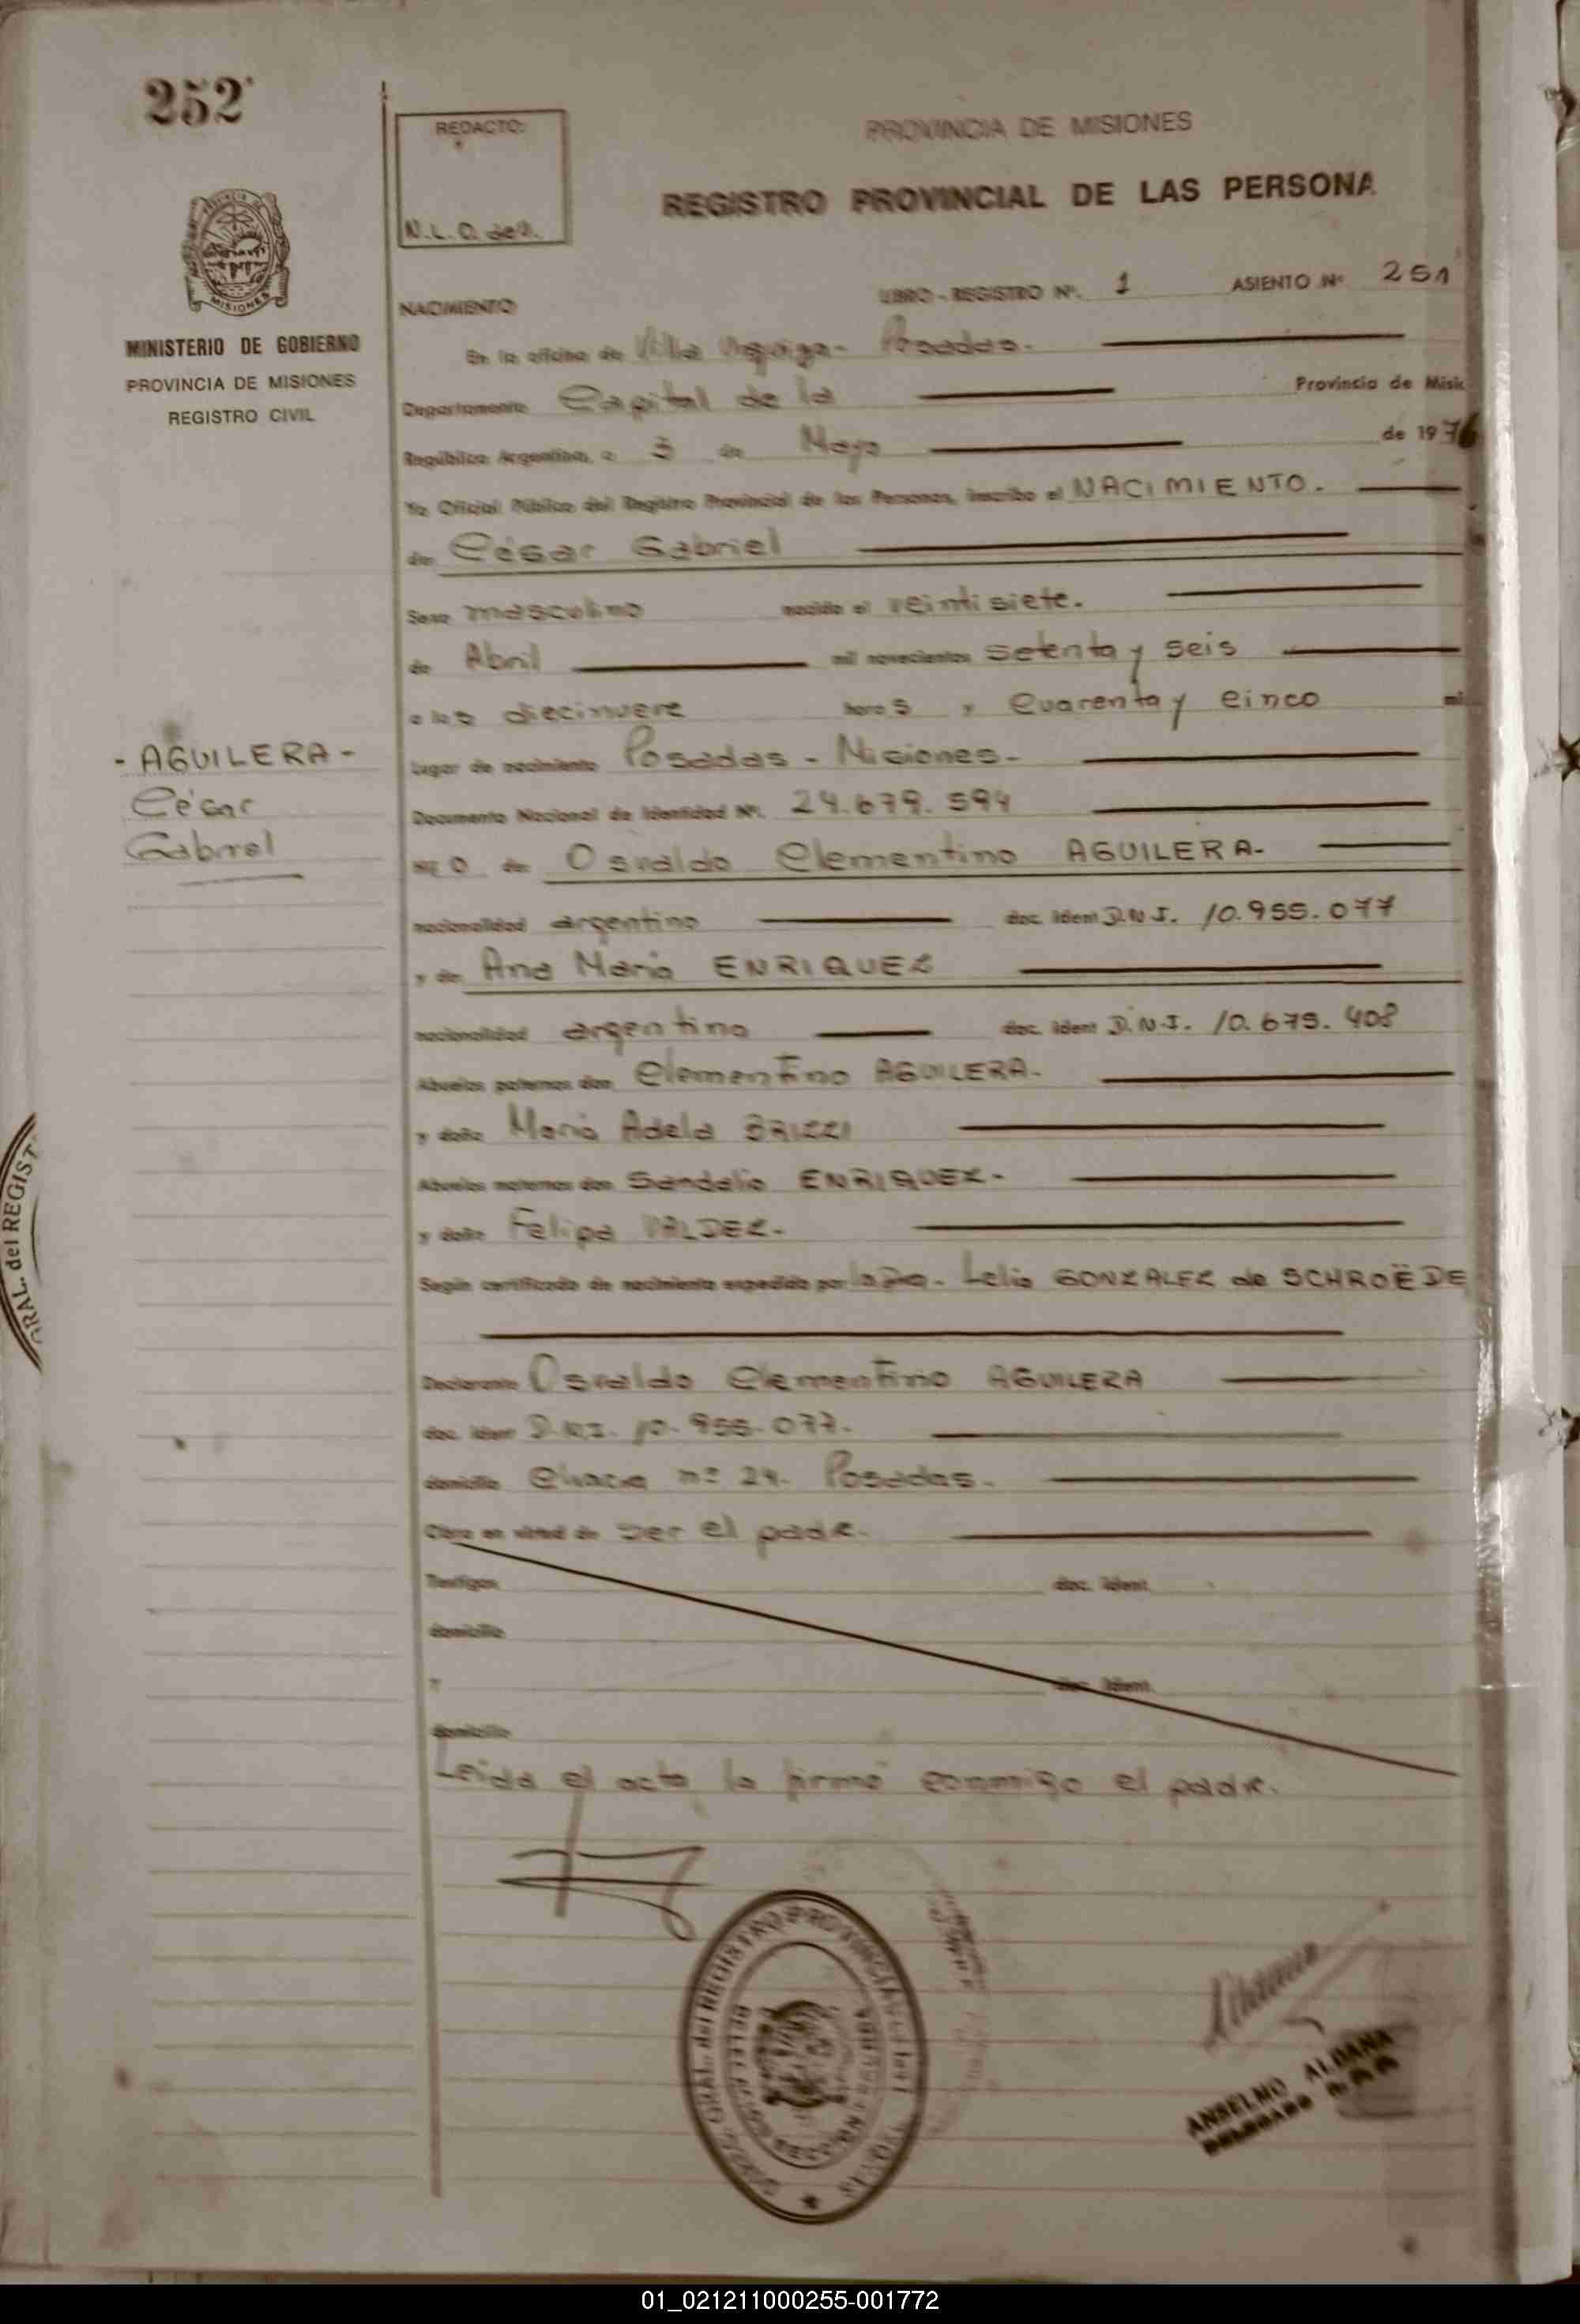 252
REDACTO:
N.L.O. de
PROVINCIA DE MISIONES
REGISTRO PROVINCIAL DE LAS PERSONA
MISIONES
MINISTERIO DE GOBIERNO
PROVINCIA DE MISIONES
REGISTRO CIVIL
NACIMIENTO
LIBRO - REGISTRO Nº. 1 ASIENTO Nº 251
En la oficina de Villa Urquiza - Posadas.
Departamento Capital de la Provincia de Misic
República Argentina, a 3 de Mayo de 1976
Yo Oficial Público del Registro Provincial de las Personas, inscribo el NACIMIENTO.
de César Gabriel
Sexo masculino nacido el veintisiete.
de Abril mil novecientos setenta y seis
a las diecinueve horas y cuarenta y cinco mi
Lugar de nacimiento Posadas - Misiones -
Documento Nacional de Identidad Nº. 24.679.594
- AGUILERA -
César
Gabriel
HIJO de Osvaldo Clementino AGUILERA-
nacionalidad argentino doc. ident D.N.I. 10.955.077
y de Ana Maria ENRIQUEZ
nacionalidad argentina doc. ident D.N.I. 10.679.408
Abuelos paternos don Clementino AGUILERA.
y doña Maria Adela BRIZZI
Abuelos maternos don Sandalio ENRIQUEZ-
y doña Felipa VALDEZ.
Según certificado de nacimiento expedido por la Lelia GONZALEZ de SCHROËDE
Declarante Osvaldo Clementino AGUILERA
doc. iden D.N.I. 10.955.077.
domicilio Chacra nº 24. Posadas.
Obra en virtud de ser el padre.
Testigos doc. ident.
domicilio
Y doc. ident.
domicilio
Leida el acta la firmó conmigo el padre.
GRAL. del REGIST
GRAL. del REGISTRO PROVINCIAL de las
ANSELMO ALDANA
DELEGADO
01_021211000255-001772